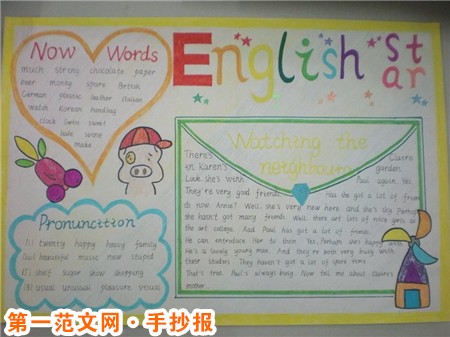 Now Words
much string chocolate paper
over money spare British
German plastic leather Italian
match Korean handbag
clock Swiss sweet
hate some
made
English Star
Watching the
neighbours
There's Claire
in Karen's garden.
Look she's with Paul again. Yes
They're very good friends. Has she got a lot of friends
do now. Annie? Well. She's very new here and she's shy. Perhaps
she hasn't got many friends. Well. there are lots of nice girls at
the art college. And Paul has got a lot of friends.
He can introduce her to them. Yes. Perhaps she's happy with
He's a lovely young man. And they're both very busy with
their studies. They haven't got a lot of spare time.
That's true. Paul's always busy. Now tell me about Claire's
mother.
Pronunction
twenty happy heavy family
beautiful music new stupid
shelf sugar show shopping
usual unusual pleasure
第一范文网·手抄报